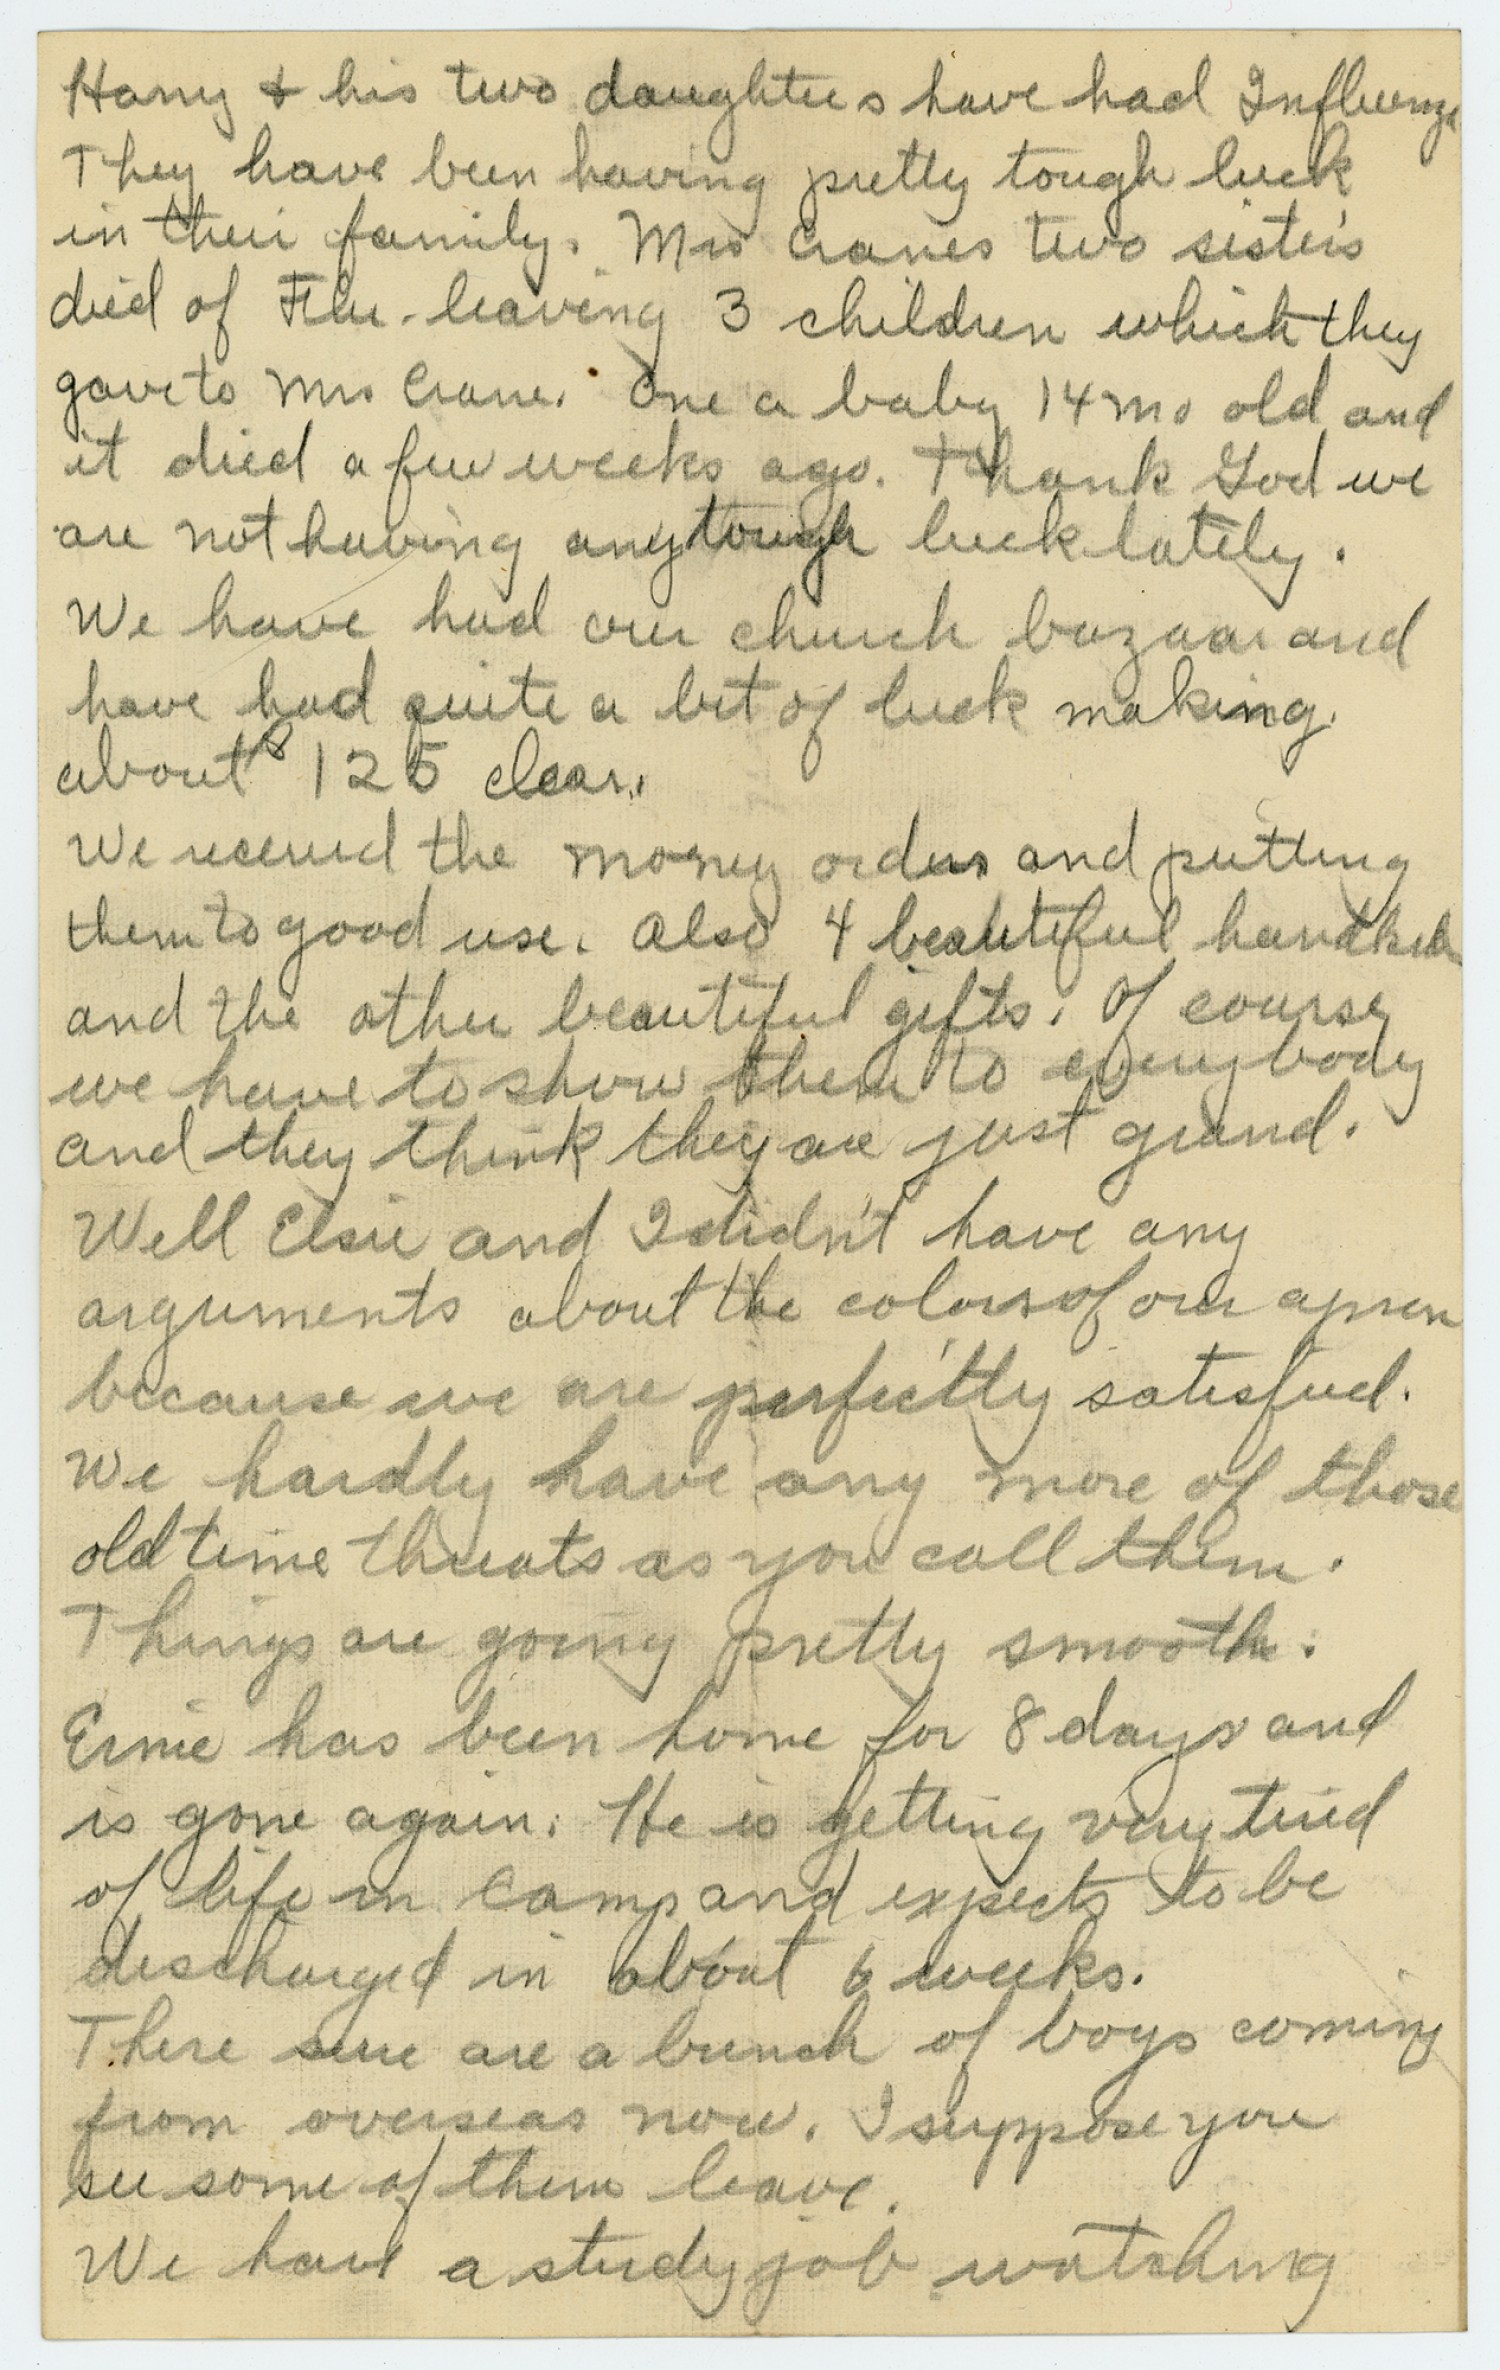 Harry & his two daughters have had Influenza
They have been having pretty tough luck
in their family. Mrs Cranes two sisters
died of Flu - leaving 3 children which they
gave to Mrs Crane. One a baby 14 mo old and
it died a few weeks ago. Thank God we
are not having any tough luck lately.
We have had our church bazaar and
have had quite a bit of luck making
about $125 clear.
We received the money orders and putting
them to good use. Also 4 beautiful handkchs
and the other beautiful gifts. Of course
we have to show them to everybody
and they think they are just grand.
Well Elsie and I didn't have any
arguments about the colors of our apron
because we are perfectly satisfied.
We hardly have any more of those
old time threats as you call them.
Things are going pretty smooth.
Ernie has been home for 8 days and
is gone again. He is getting very tired
of life in Camp and expects to be
discharged in about 6 weeks.
There sure are a bunch of boys coming
from overseas now. I suppose you
see some of them leave.
We have a study job watching